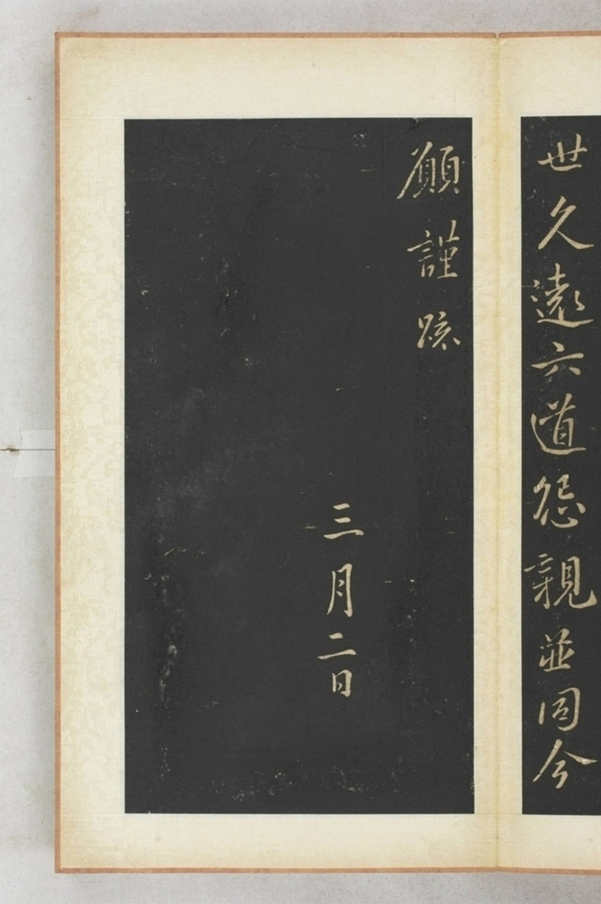 世久遠六道怨親並同今
願謹疏
三月二日